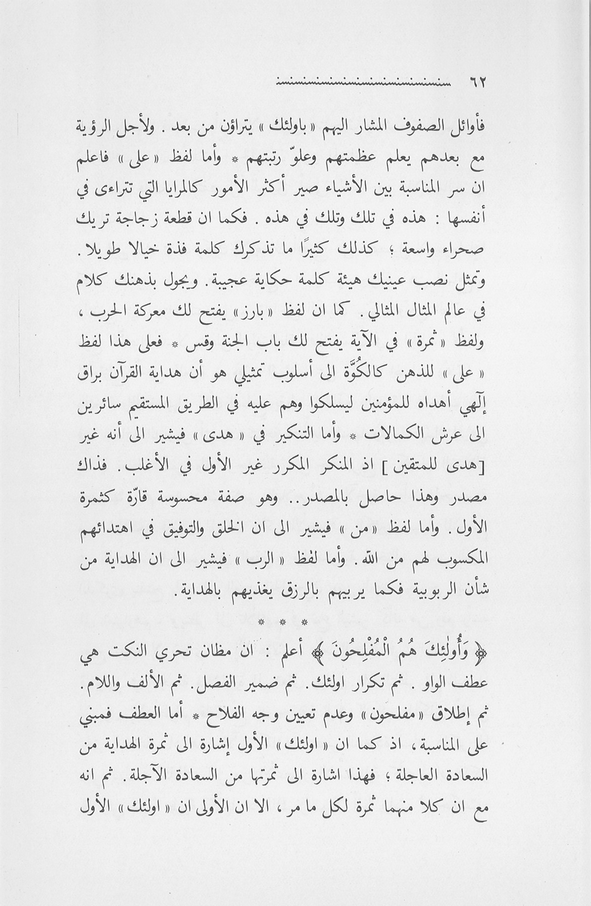 ٦٢
فأوائل الصفوف المشار اليهم «باولئك» يتراؤن من بعد . ولأجل الرؤية
مع بعدهم يعلم عظمتهم وعلوّ رتبتهم * وأما لفظ «على» فاعلم
ان سر المناسبة بين الأشياء صير أكثر الأمور كالمرايا التي تتراءى في
أنفسها : هذه في تلك وتلك في هذه . فكما ان قطعة زجاجة تريك
صحراء واسعة ؛ كذلك كثيرًا ما تذكرك كلمة فذة خيالا طويلا .
وتمثل نصب عينيك هيئة كلمة حكاية عجيبة . ويجول بذهنك كلام
في عالم المثال المثالي . كما ان لفظ «بارز» يفتح لك معركة الحرب ،
ولفظ «ثمرة» في الآية يفتح لك باب الجنة وقس * فعلى هذا لفظ
«على» للذهن كالكُوَّة الى أسلوب تمثيلي هو أن هداية القرآن براق
إلٓهي أهداه للمؤمنين ليسلكوا وهم عليه في الطريق المستقيم سائرين
الى عرش الكمالات * وأما التنكير في «هدى» فيشير الى أنه غير
[هدى للمتقين] اذ المنكر المكرر غير الأول في الأغلب . فذاك
مصدر وهذا حاصل بالمصدر .. وهو صفة محسوسة قارّة كثمرة
الأول . وأما لفظ «من» فيشير الى ان الخلق والتوفيق في اهتدائهم
المكسوب لهم من الله . وأما لفظ «الرب» فيشير الى ان الهداية من
شأن الربوبية فكما يربيهم بالرزق يغذيهم بالهداية .
* * *
﴿ وَأُولٰئِكَ هُمُ الْمُفْلِحُونَ ﴾ أعلم : ان مظان تحري النكت هي
عطف الواو . ثم تكرار اولئك . ثم ضمير الفصل . ثم الألف واللام .
ثم إطلاق «مفلحون» وعدم تعيين وجه الفلاح * أما العطف فمبني
على المناسبة ، اذ كما ان «اولئك» الأول إشارة الى ثمرة الهداية من
السعادة العاجلة ؛ فهذا اشارة الى ثمرتها من السعادة الآجلة . ثم انه
مع ان كلا منهما ثمرة لكل ما مر ، الا ان الأولى ان «اولئك» الأول